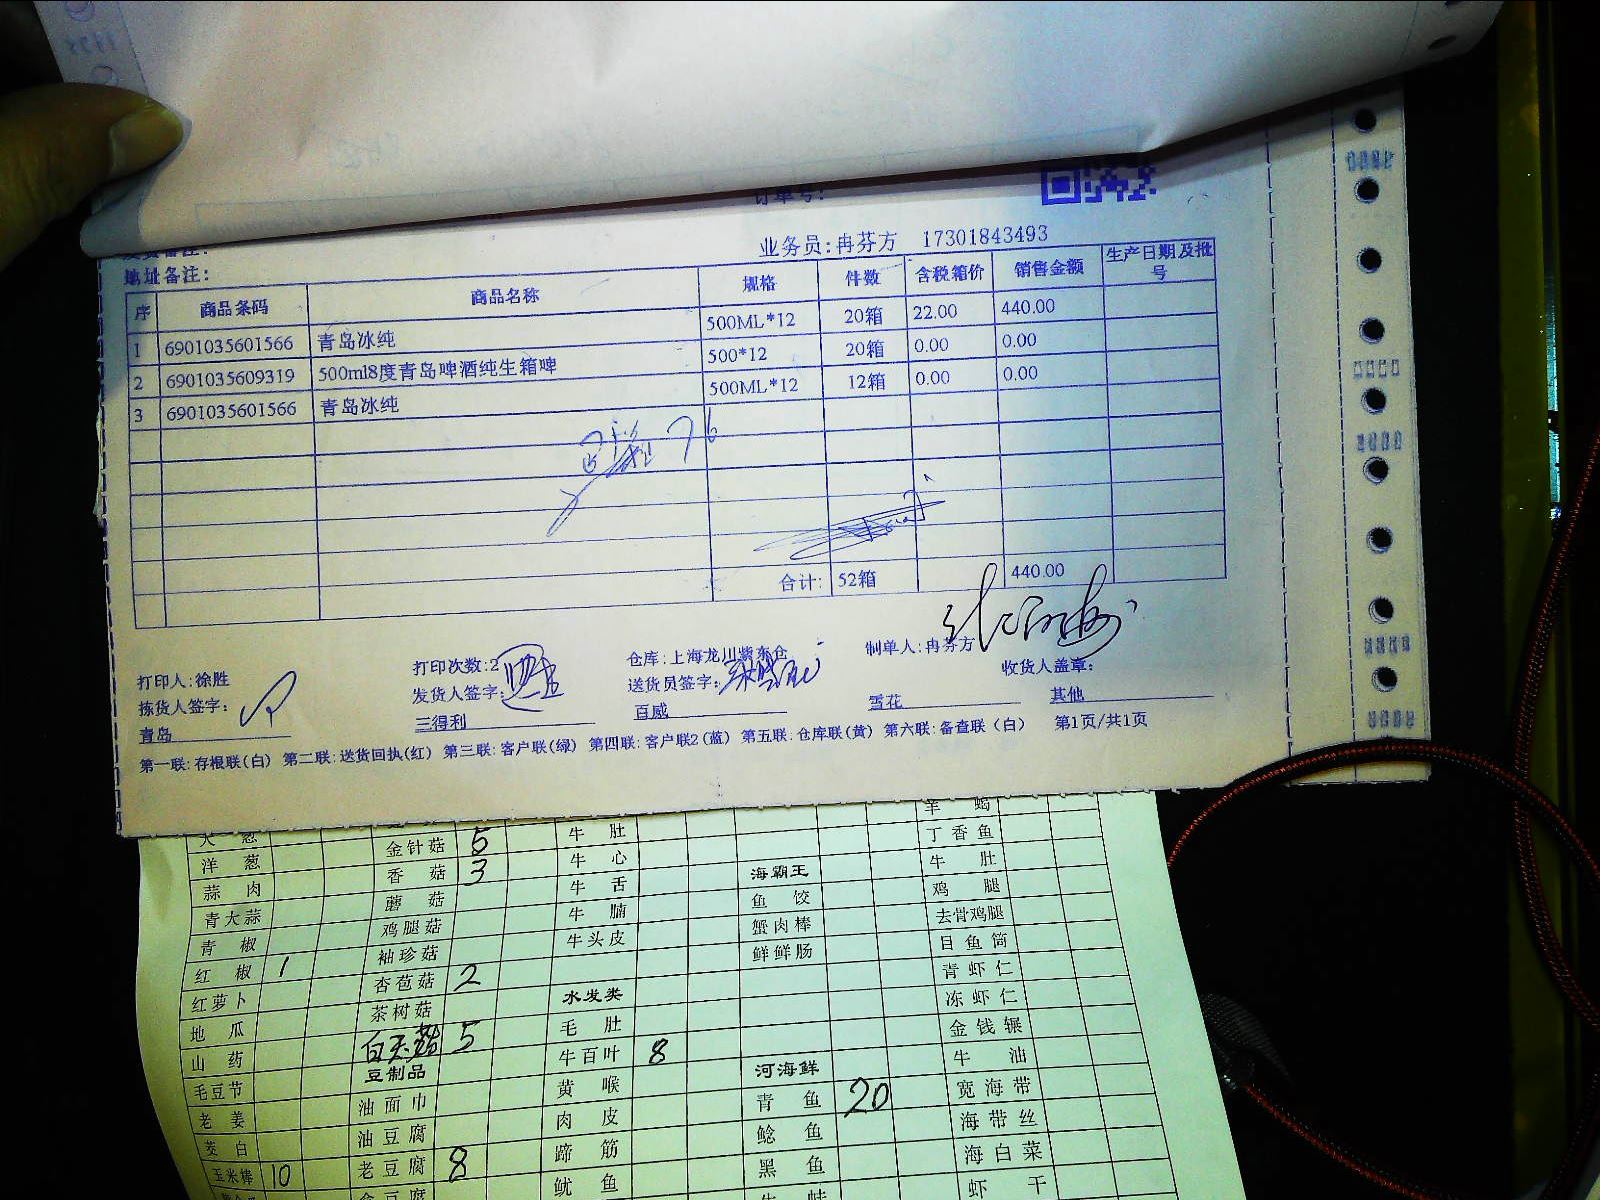 订单号:
业务员:冉芬方 17301843493
地址备注:
序 商品条码 商品名称 规格 件数 含税箱价 销售金额 生产日期及批号
1 6901035601566 青岛冰纯 500ML*12 20箱 22.00 440.00
2 6901035609319 500ml8度青岛啤酒纯生箱啤 500*12 20箱 0.00 0.00
3 6901035601566 青岛冰纯 500ML*12 12箱 0.00 0.00
合计: 52箱 440.00
打印人:徐胜 打印次数:2 仓库:上海龙川紫东仓 制单人:冉芬方 收货人盖章:
拣货人签字: 发货人签字: 送货员签字:
青岛 三得利 百威 雪花 其他
第一联:存根联(白) 第二联:送货回执(红) 第三联:客户联(绿) 第四联:客户联2(蓝) 第五联:仓库联(黄) 第六联:备查联(白) 第1页/共1页
大葱 牛肚 羊蝎
洋葱 金针菇 5 牛心 丁香鱼
蒜肉 香菇 3 牛舌 海霸王 牛肚
青大蒜 蘑菇 牛腩 鱼饺 鸡腿
青椒 鸡腿菇 牛头皮 蟹肉棒 去骨鸡腿
红椒 1 袖珍菇 鲜鲜肠 目鱼筒
红萝卜 杏苞菇 2 水发类 青虾仁
地瓜 茶树菇 毛肚 冻虾仁
山药 白玉菇 5 牛百叶 8 金钱辗
毛豆节 豆制品 黄喉 河海鲜 牛油
老姜 油面巾 肉皮 青鱼 20 宽海带
茭白 油豆腐 蹄筋 鲶鱼 海带丝
玉米棒 10 老豆腐 8 鱿鱼 黑鱼 海白菜
虾干